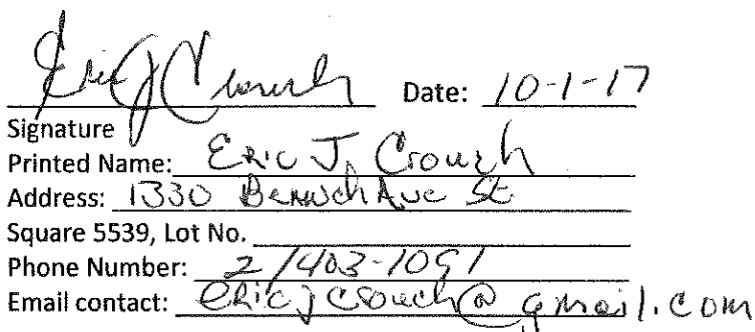 Eric J Crouch Date: 10-1-17
Signature
Printed Name: Eric J. Crouch
Address: 1330 Ave SE
Square 5539, Lot No.
Phone Number: 2/403-1091
Email contact: ericjcrouch@gmail.com